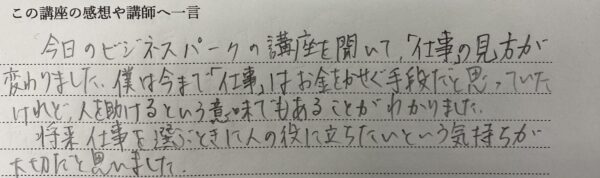 この講座の感想や講師へ一言
今日のビジネスパークの講座を聞いて、「仕事」の見方が
変わりました。僕は今まで「仕事」はお金をかせぐ手段だと思っていた
けれど、人を助けるという意味でもあることがわかりました。
将来仕事を選ぶときに人の役に立ちたいという気持ちが
大切だと思いました。